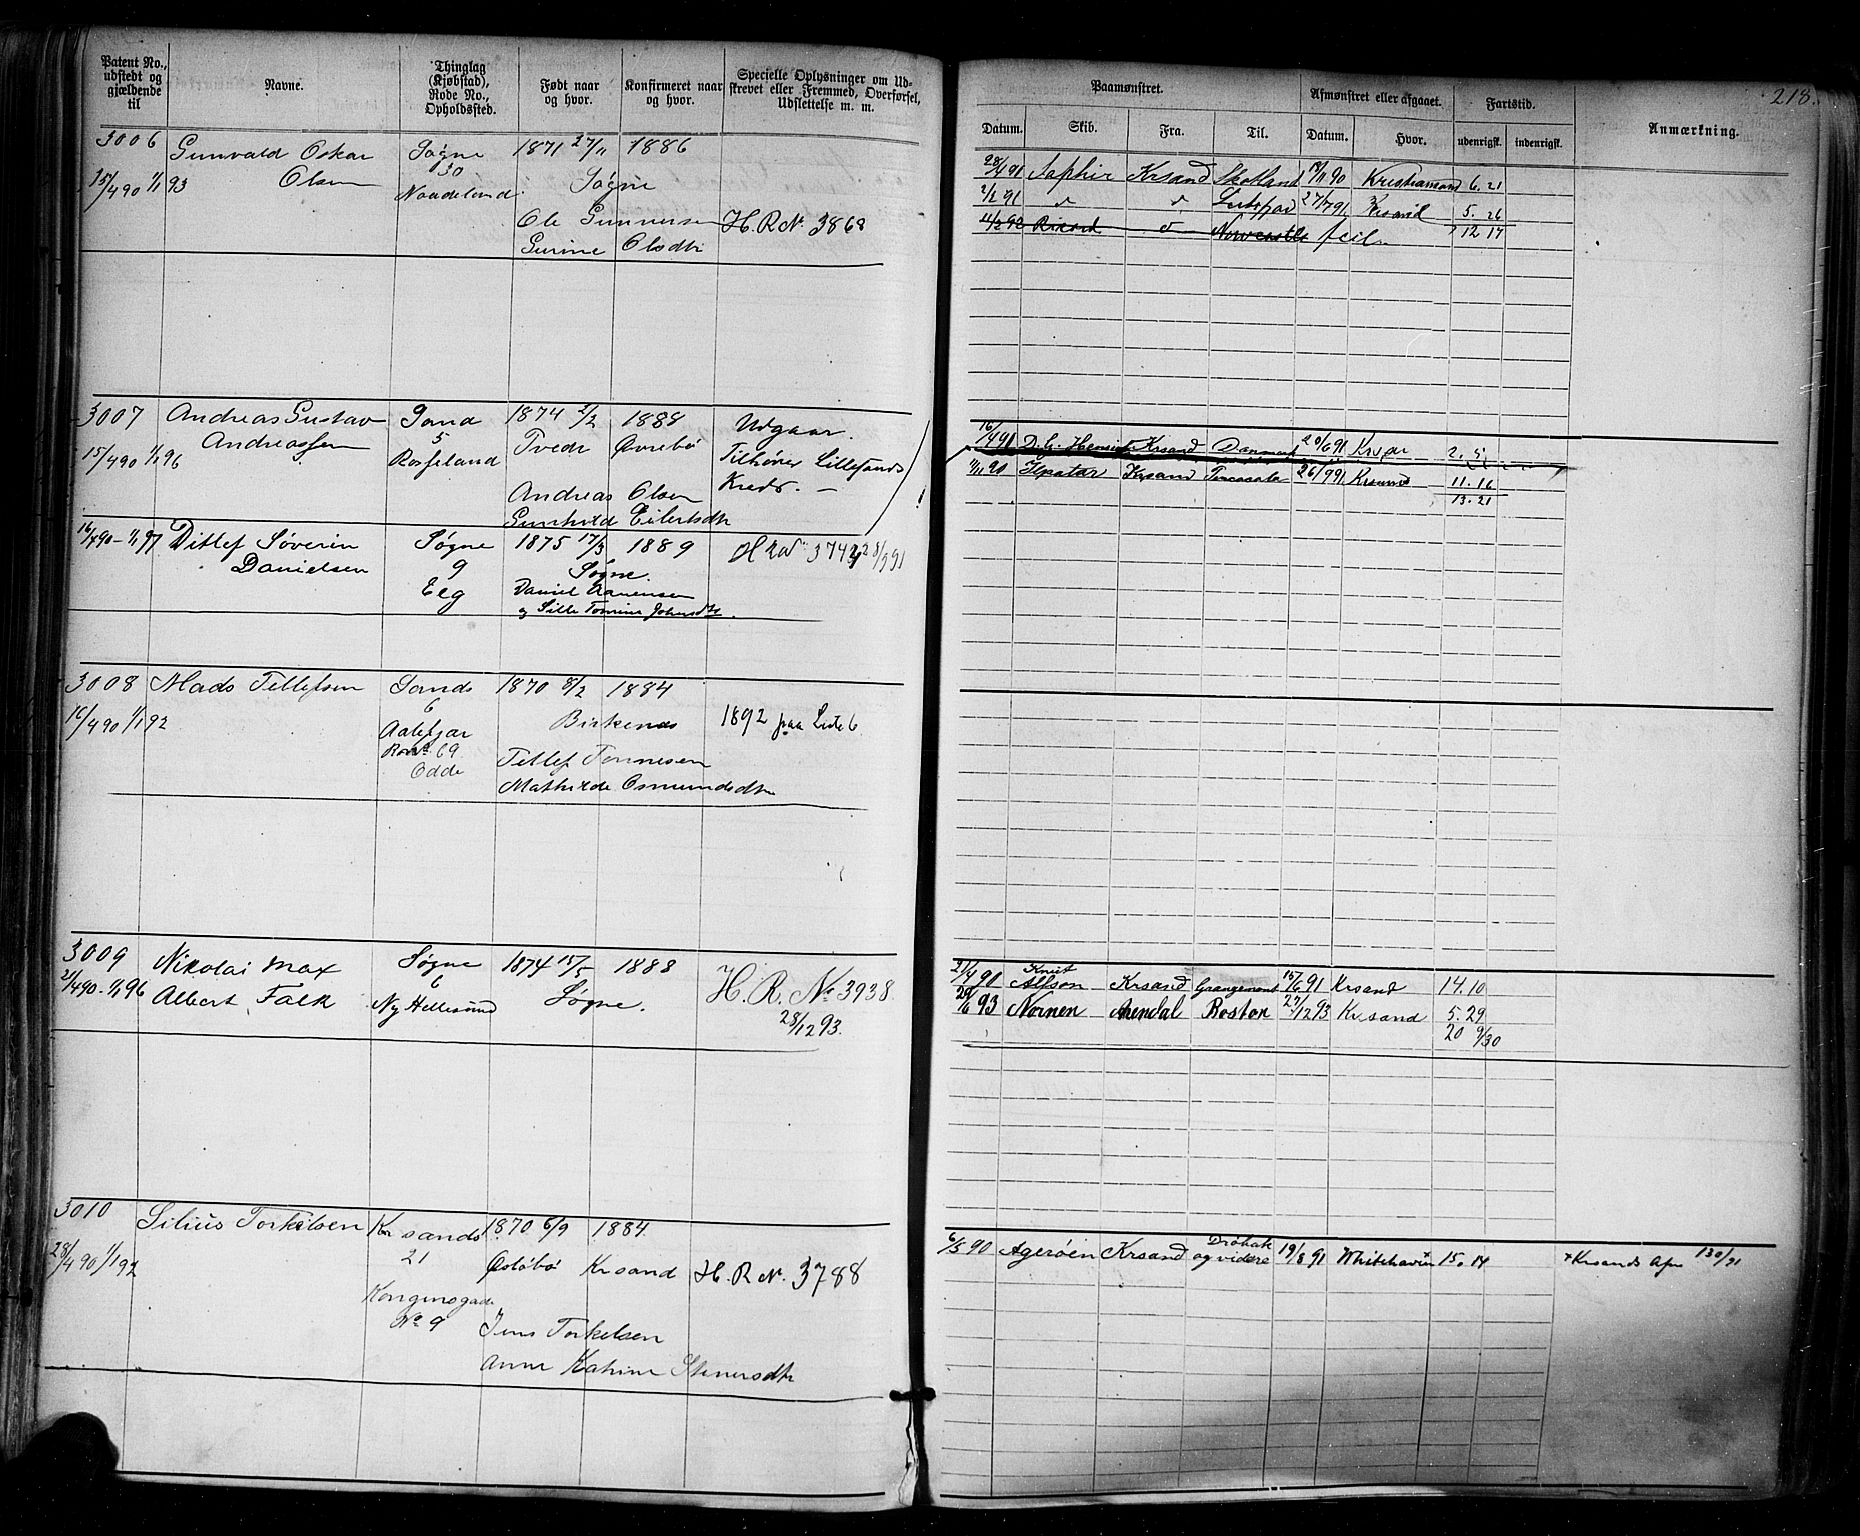 218.
Patent No., udstedt og gjældende til
Navne.
Thinglag (Kjøbstad), Rode No., Opholdssted.
Født naar og hvor.
Konfirmeret naar og hvor.
Specielle Oplysninger om Udskrevet eller Fremmed, Overførsel, Udslettelse m. m.
Paamønstret.
Afmønstret eller afgaaet.
Fartstid.
Anmærkning.
Datum. Skib. Fra. Til. Datum. Hvor. udenrigsk. indenrigsk.
3006 Gunvald Oskar Søgne 1871 27/11 1886
15/4 90 1/1 93 Olsen 30 Søgne
Naadeland
Ole Gunnersen H.R.N. 3868
Gurine Olsdtr
28/4 91 Saphir Krsand Skotland 90 Kristiansand 6. 21
2/2 91 27/7 91 Krsand 5. 26
Newcastle feil 12 17
3007 Andreas Gustav 1874 2/2 1888 Udgaar.
15/4 90 1/1 96 Andreassen 5 Tvedt Øvrebø Tilhører Lillesands
Rosseland Kreds.
Andreas Olsen
Gunhild Eilertsdtr
16/4 91 Krsand Danmark 20/6 91 2. 5
90 Krsand Terceala 26/9 91 Krsund 11. 16
13. 21
16/4 90 - 1/1 97 Ditlef Søverin Søgne 1875 17/3 1889 3744 28/9 91
Danielsen 9 Søgne.
Eeg Daniel Aanensen
og Sille Tomine Johnsdtr.
3008 Mads Tellefsen 1870 8/2 1884
16/4 90 1/1 92 6 Birkenes 1892 paa Liste 6
Aalefjær
69
Odde Tellef Tønnesen
Mathilde Osmundsdtr
3009 Nikolai Max Søgne 1874 15/5 1888 H. R. No 3938
21/4 90 - 1/1 96 Albert Falk 6 Søgne. 28/12 93.
Ny Hellesund
21/4 90 Knut Alfson Krsand Grangemont 15/6 91 Krsand 14. 10
93 Nornen Arendal Boston 27/12 93 Krsand 5. 29
20 9/30
3010 Silius Torkelsen Krsands 1870 6/9 1884.
28/4 90 1/1 92 21 Oslobø Krsand H. R N. 3788
Kongensgade
No 9 Jens Torkelsen
Anne Katrine Stenersdtr
6/5 90 Agerøen Krsand Drøbak og videre 19/8 91 Whitehaven 15. 14 + Krsands